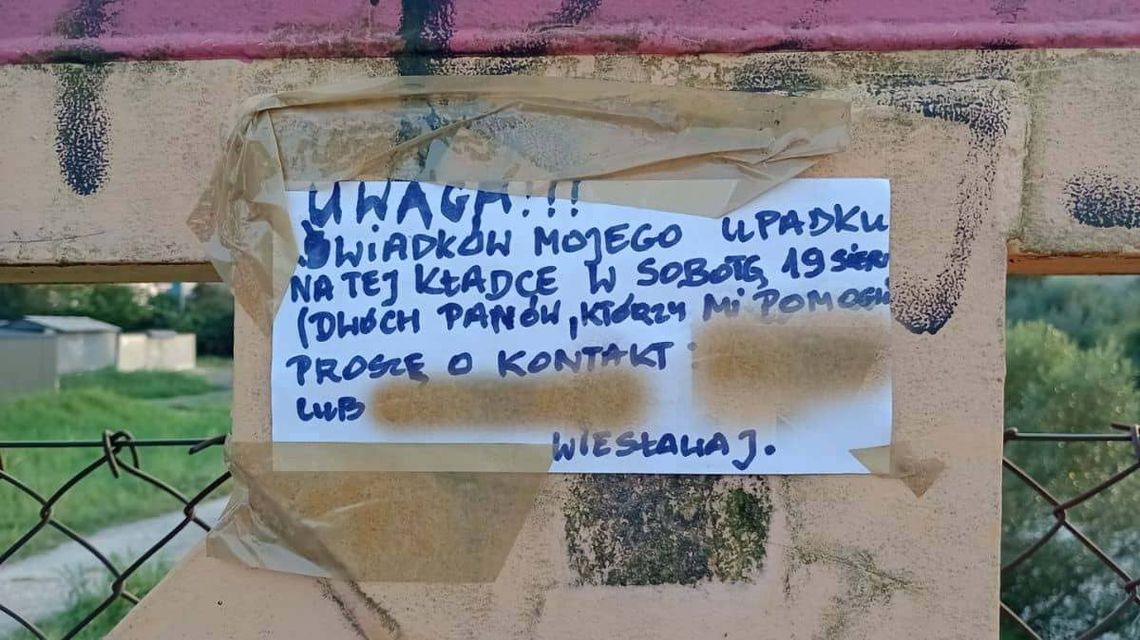 UWAGA!!!
ŚWIADKÓW MOJEGO UPADKU
NA TEJ KŁADCE W SOBOTĘ, 19 SIER
(DWÓCH PANÓW, KTÓRZY MI POMOGLI
PROSZĘ O KONTAKT:
LUB
WIESŁAWA J.